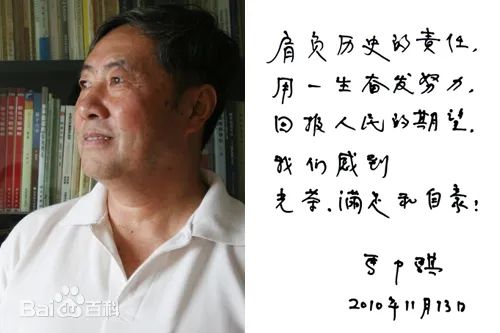 肩负历史的责任,
用一生奋发努力,
回报人民的期望.
我们感到
光荣、满足和自豪!
2010年11月13日
Bai百科